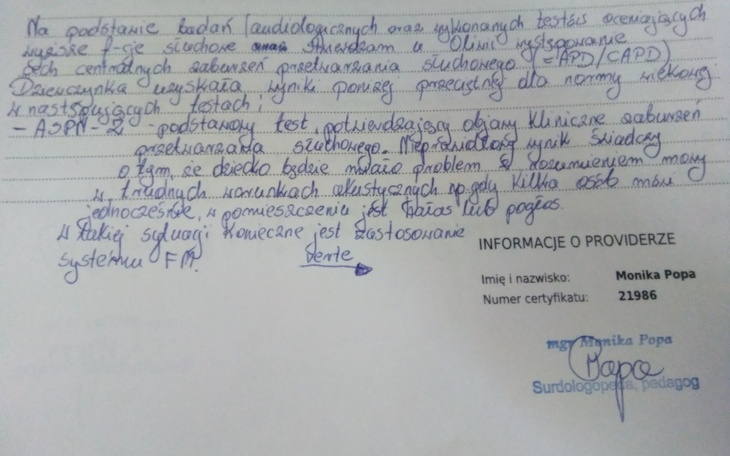 Na podstawie badań audiologicznych oraz wykonanych testów oceniających
wyższe f-cje słuchowe stwierdzam u Oliwii występowanie
cech centralnych zaburzeń przetwarzania słuchowego (=APD/CAPD)
Dziewczynka uzyskała wynik poniżej przeciętnej dla normy wiekowej
w następujących testach:
- ASPN-2 - podstawowy test, potwierdzający objawy kliniczne zaburzeń
przetwarzania słuchowego. Nieprawidłowy wynik świadczy
o tym, że dziecko będzie miało problem z rozumieniem mowy
w trudnych warunkach akustycznych np. gdy kilka osób mówi
jednocześnie, w pomieszczeniu jest hałas lub pogłos.
W takiej sytuacji konieczne jest zastosowanie
systemu FM. Verte
INFORMACJE O PROVIDERZE
Imię i nazwisko: Monika Popa
Numer certyfikatu: 21986
mgr Monika Popa
Popa
Surdologopeda, pedagog